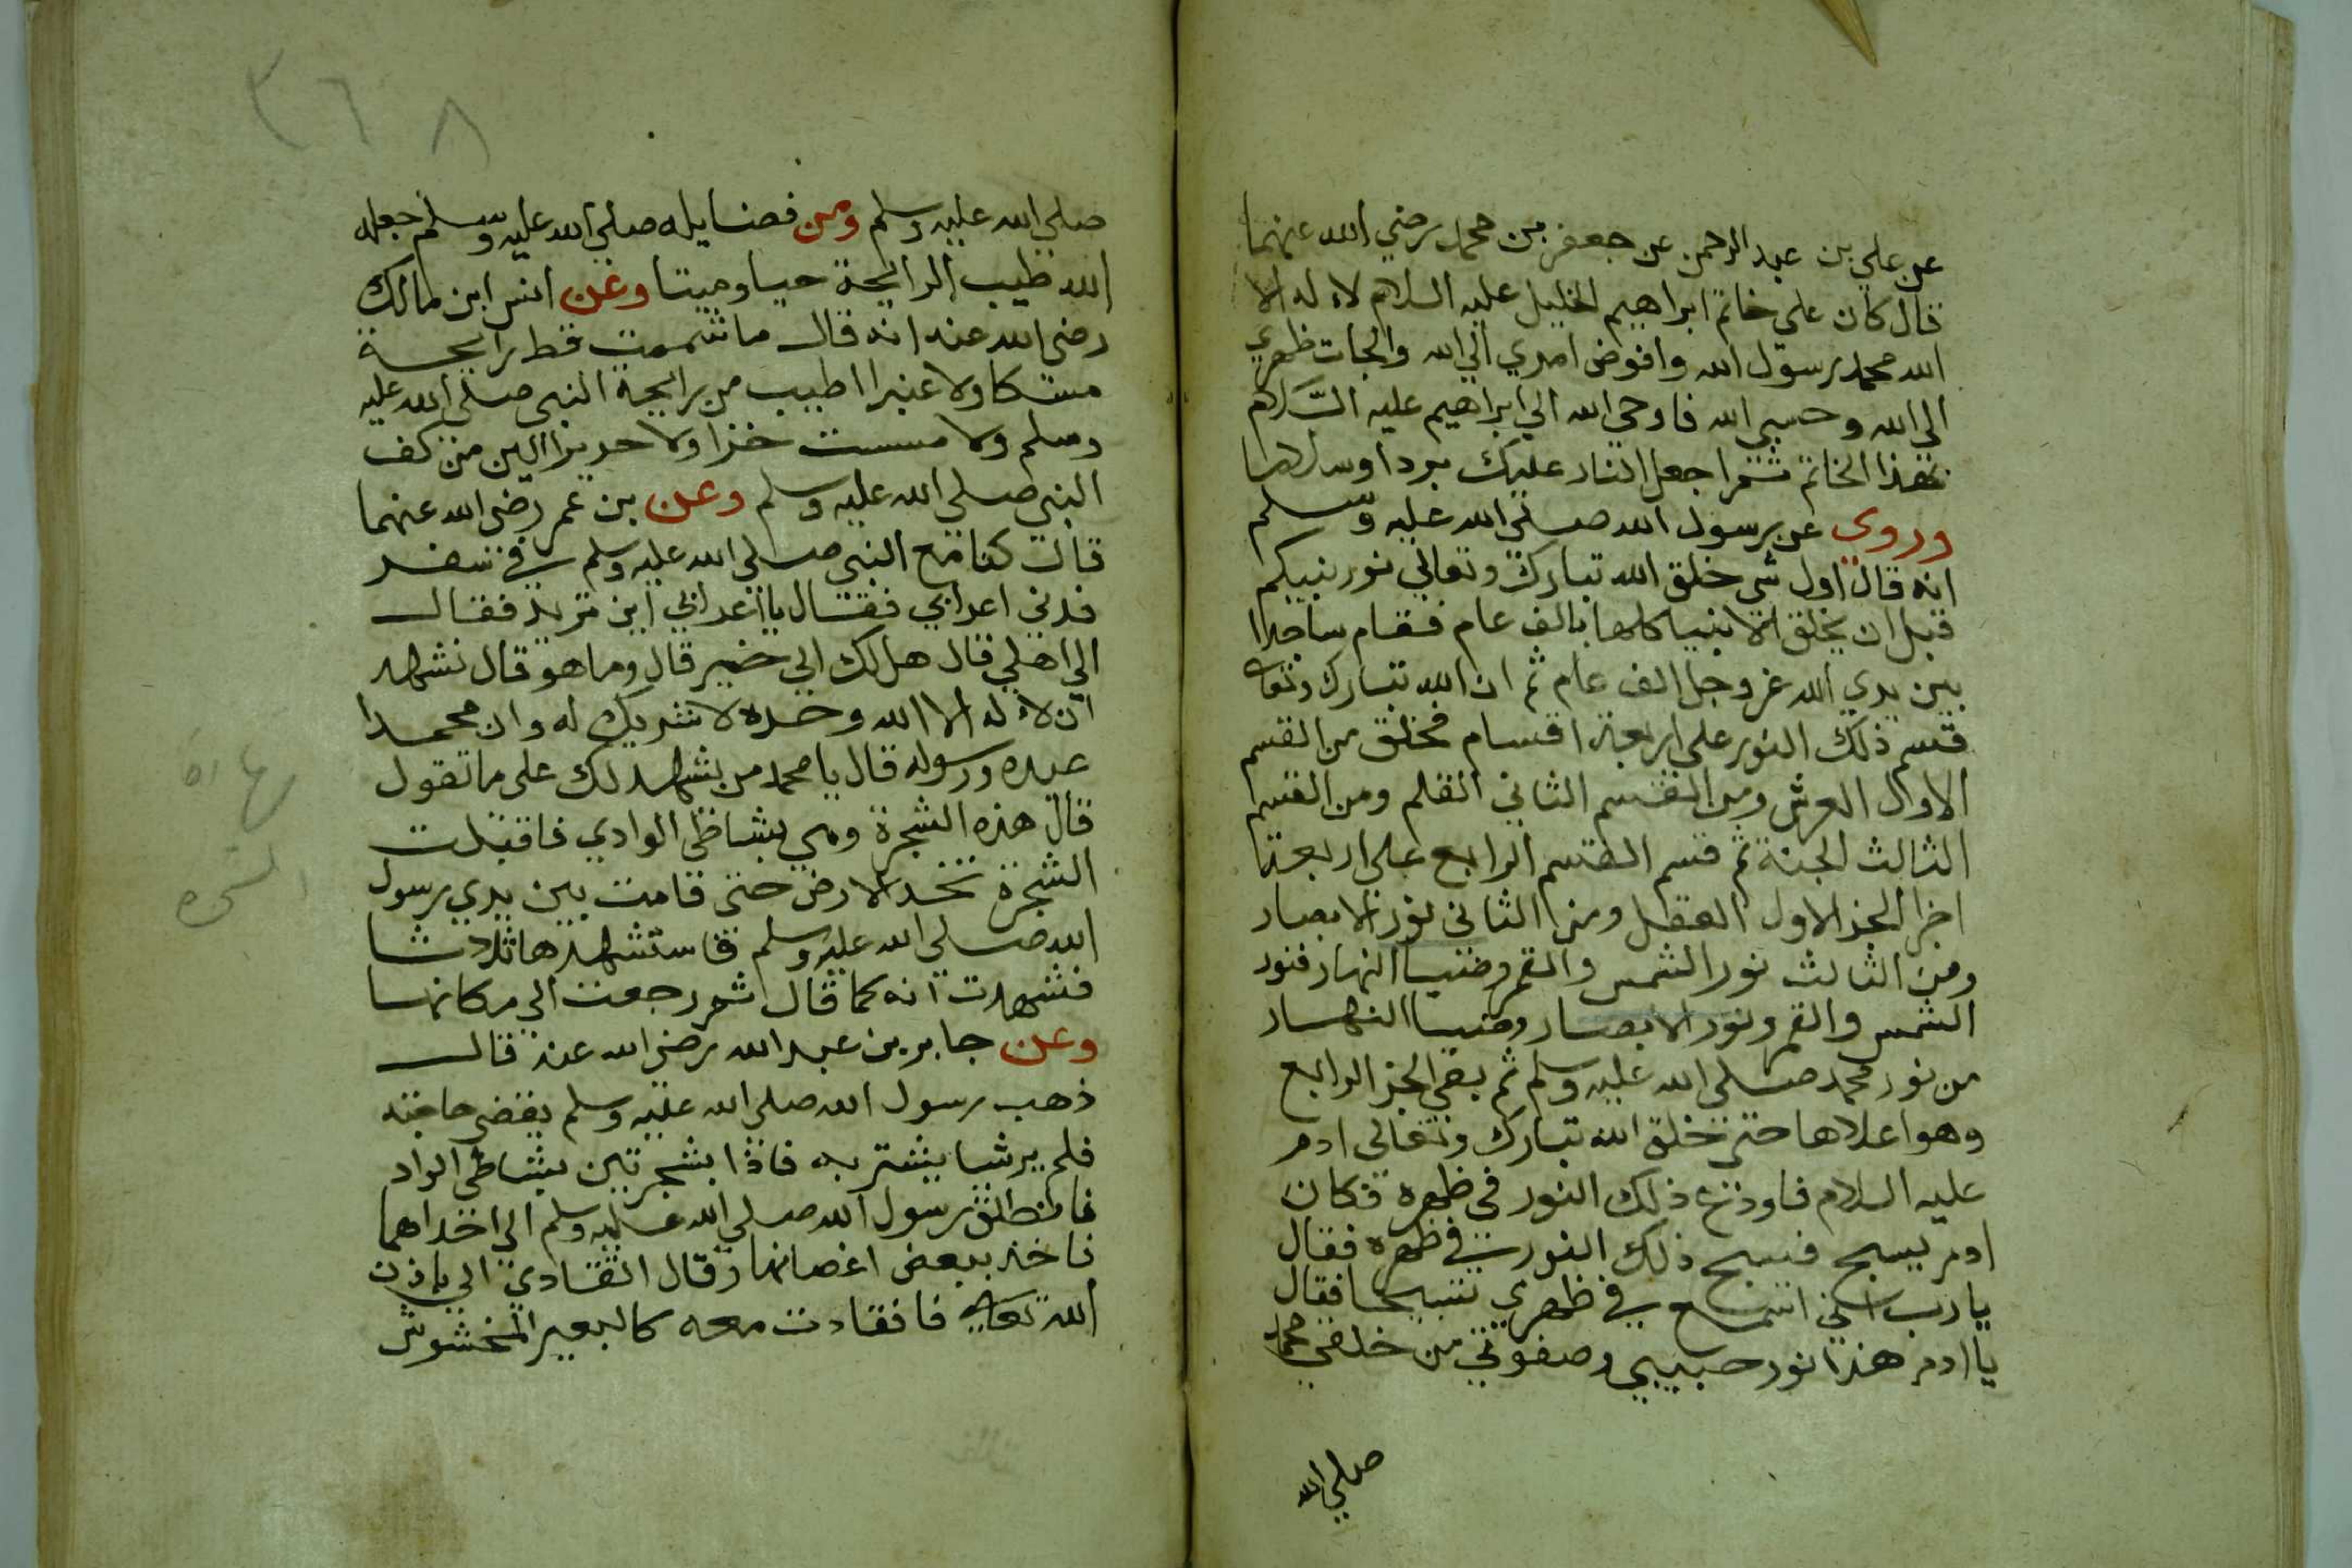 عن علي بن عبد الرحمن عن جعفر بن محمد رضي الله عنهما
قال كان علي خاتم ابراهيم الخليل عليه السلام لا اله الا
الله محمد رسول الله وافوض امري الي الله والجات ظهري
الي الله وحسبي الله فاوحي الله الي ابراهيم عليه السلام
بهذا الخاتم ثم اجعل النار عليك بردا وسلاما
وروي عن رسول الله صلي الله عليه وسلم
انه قال اول شي خلق الله تبارك وتعالي نور نبيكم
قبل ان يخلق الانبيا كلها بالف عام فقام ساجدا
بين يدي الله عز وجل الف عام ثم ان الله تبارك وتعالي
قسم ذلك النور علي اربعة اقسام فخلق من القسم
الاول العرش ومن القسم الثاني القلم ومن القسم
الثالث الجنة ثم قسم القسم الرابع علي اربعة
اجزا الجز الاول العقل ومن الثاني نور الابصار
ومن الثالث نور الشمس والقمر وضيا النهار فنور
الشمس والقمر ونور الابصار وضيا النهار
من نور محمد صلي الله عليه وسلم ثم بقي الجز الرابع
وهو اعلاها حتي خلق الله تبارك وتعالي ادم
عليه السلام فاودع ذلك النور في ظهره فكان
ادم يسبح فيسبح ذلك النور في ظهره فقال
يا رب اني اسمع في ظهري تسبيحا فقال
يا ادم هذا نور حبيبي وصفوتي من خلقي محمد
صلي الله
٣٦٨
صلي الله عليه وسلم ومن فضايله صلي الله عليه وسلم جعله
الله طيب الرايحة حيا وميتا وعن انس ابن مالك
رضي الله عنه انه قال ما شممت قط رايحة
مسكا ولا عنبرا اطيب من رايحة النبي صلي الله عليه
وسلم ولا مسست خزا ولا حريرا الين من كف
النبي صلي الله عليه وسلم وعن بن عمر رضي الله عنهما
قال كنا مع النبي صلي الله عليه وسلم في سفر
فدني اعرابي فقال يا اعرابي اين تريد فقال
الي اهلي قال هل لك الي خير قال وما هو قال تشهد
ان لا اله الا الله وحده لا شريك له وان محمدا
عبده ورسوله قال يا محمد من يشهد لك علي ما تقول
قال هذه الشجرة وهي بشاطي الوادي فاقبلت
الشجرة تخد الارض حتي قامت بين يدي رسول
الله صلي الله عليه وسلم فاستشهدها ثلاثا
فشهدت انه كما قال ثم رجعت الي مكانها
وعن جابر بن عبد الله رضي الله عنه قال
ذهب رسول الله صلي الله عليه وسلم يقضي حاجته
فلم ير شيا يستتر به فاذا بشجرتين بشاطي الواد
فانطلق رسول الله صلي الله عليه وسلم الي احداهما
فاخذ ببعض اغصانها وقال انقادي الي باذن
الله تعالي فانقادت معه كالبعير المخشوش